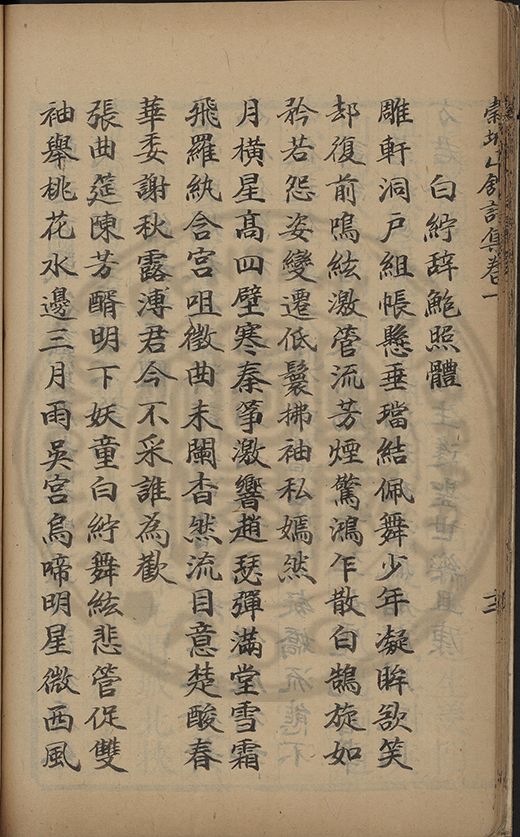 山舘詩集卷一
三
白紵辭鮑照體
雕軒洞戶組帳懸垂璫結佩舞少年凝眸欲笑
却復前鳴絃激管流芳煙驚鴻乍散白鵠旋如
矜若怨姿變遷低鬟拂袖私嫣然
月橫星高四壁寒秦箏激響趙瑟彈滿堂雪霜
飛羅紈含宮咀徵曲未闌杳然流目意楚酸春
華委謝秋露漙君今不采誰為歡
張曲筵陳芳醑明下妖童白紵舞絃悲管促雙
袖舉桃花水邊三月雨吳宮烏啼明星微西風